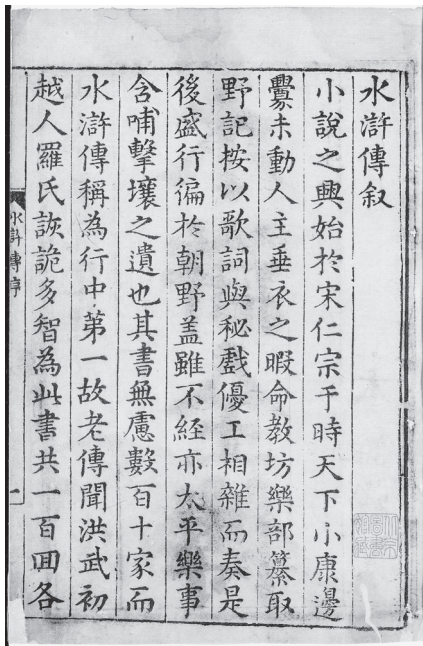 水滸傳叙
小說之興始於宋仁宗于時天下小康邊
釁未動人主垂衣之暇命教坊樂部纂取
野記按以歌詞與秘戲優工相雜而奏是
後盛行徧於朝野盖雖不經亦太平樂事
含哺擊壤之遺也其書無慮數百十家而
水滸傳稱為行中第一故老傳聞洪武初
越人羅氏詼詭多智為此書共一百囬各
水滸傳序
一